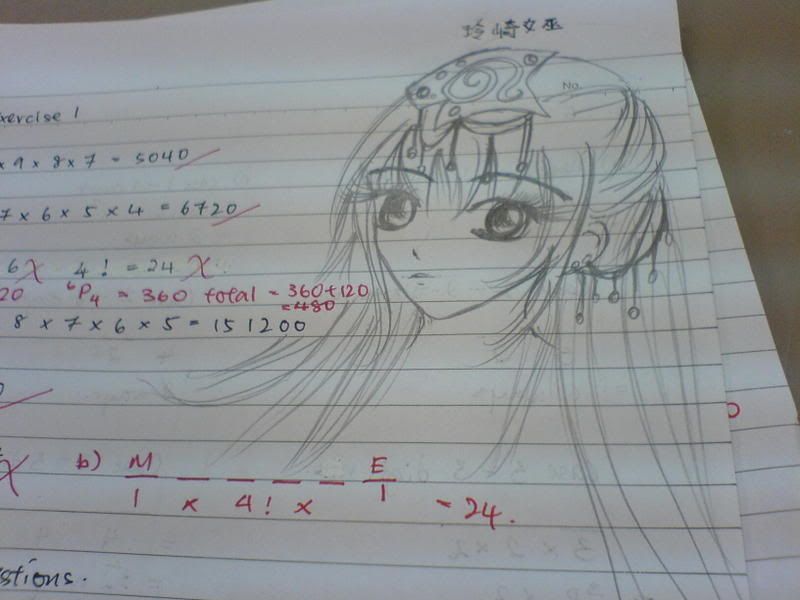 玲崎女巫
No.
xercise 1
x 9 x 8 x 7 = 5040
7 x 6 x 5 x 4 = 6720
6 4! = 24
20 ⁶P₄ = 360 total = 360+120
= 480
8 x 7 x 6 x 5 = 151200
b) M _ _ _ _ E
1 x 4! x 1 = 24.
stions.